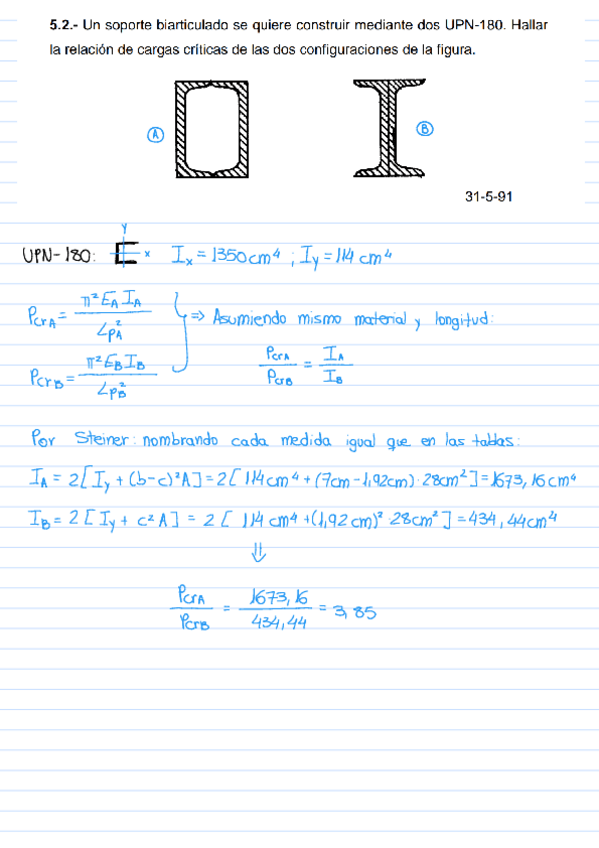 5.2.- Un soporte biarticulado se quiere construir mediante dos UPN-180. Hallar
la relación de cargas críticas de las dos configuraciones de la figura.
A
B
31-5-91
UPN-180: Y x Ix = 1350cm⁴ ; Iy = 114 cm⁴
PcrA = π² EA IA / LpA²
⇒ Asumiendo mismo material y longitud:
PcrB = π² EB IB / LpB²
PcrA / PcrB = IA / IB
Por Steiner: nombrando cada medida igual que en las tablas:
IA = 2[Iy + (b-c)²A] = 2[114cm⁴ + (7cm-1,92cm)·28cm²] = 1673,16cm⁴
IB = 2[Iy + c²A] = 2[114cm⁴ + (1,92cm)² 28cm²] = 434,44cm⁴
⇓
PcrA / PcrB = 1673,16 / 434,44 = 3,85